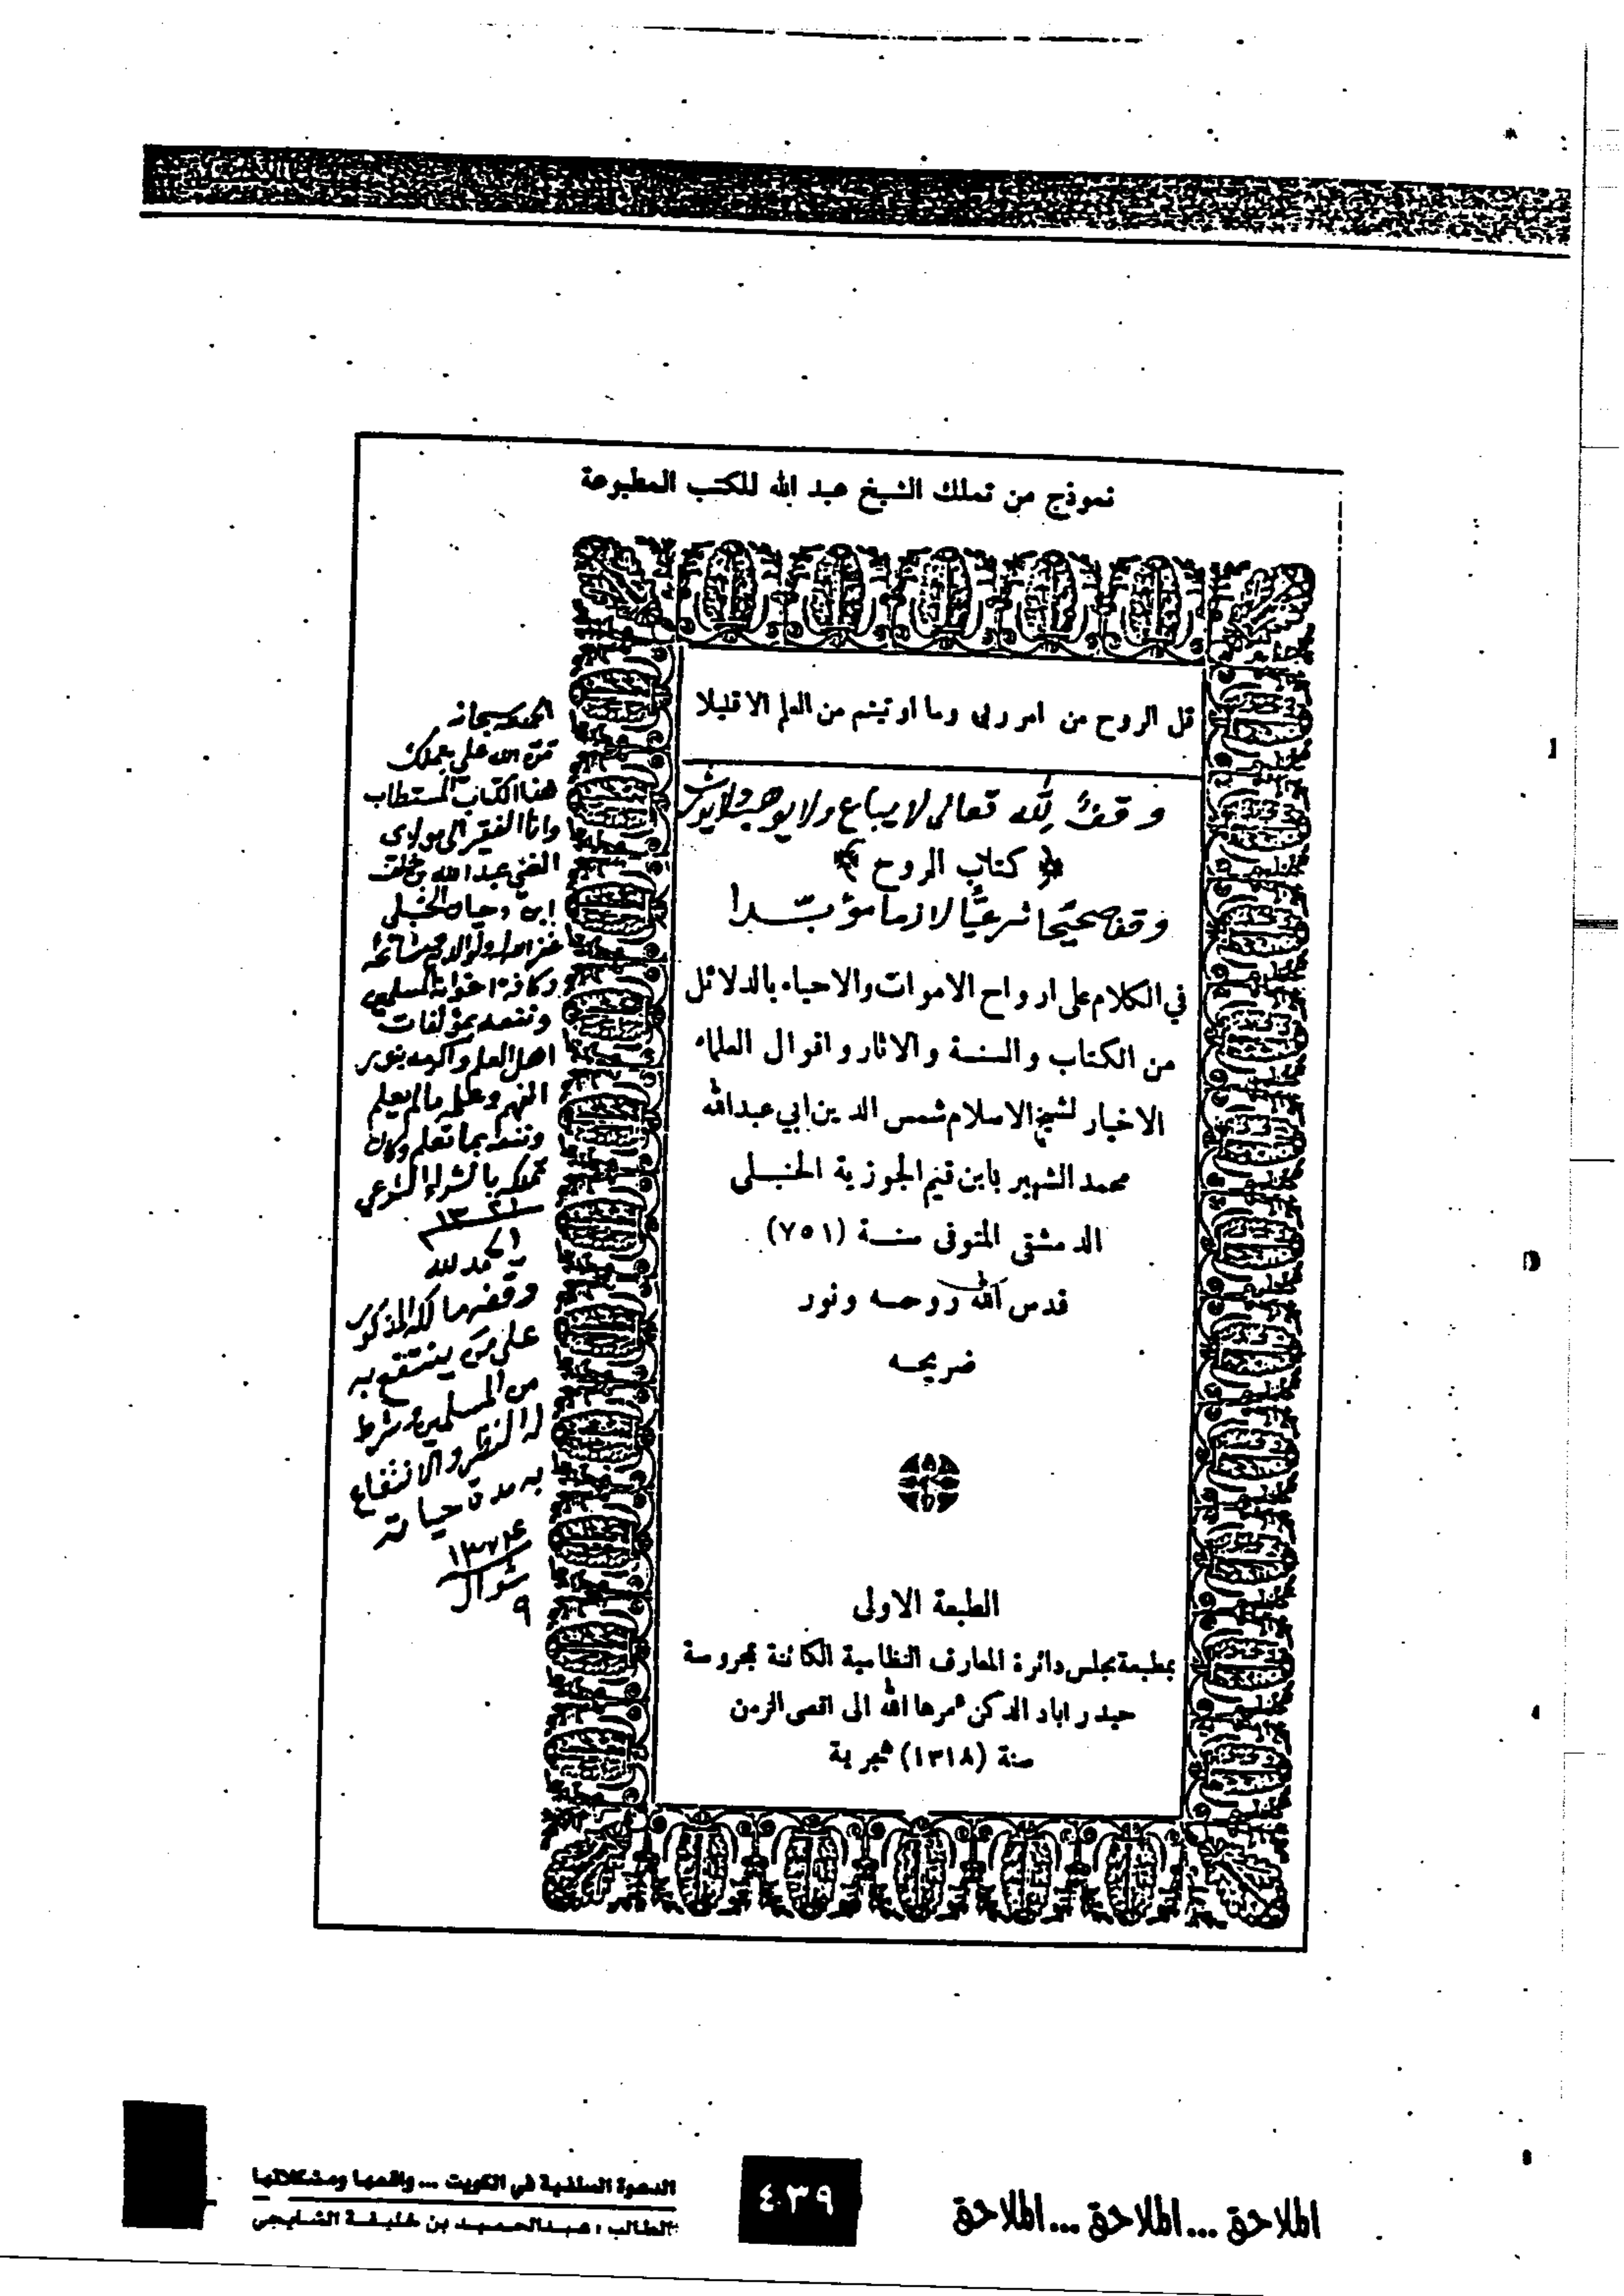 نموذج من تملك الشيخ عبد الله للكتب المطبوعة
قل الروح من امر ربى وما اوتيتم من العلم الا قليلا
وقفٌ لله تعالى لا يباع ولا يوهب ولا يورث
﴿ كتاب الروح ﴾
وقفا صحيحا شرعيًّا لازما مؤبّدا
في الكلام على ارواح الاموات والاحياء بالدلائل
من الكتاب والسنة والاثار واقوال العلماء
الاخيار لشيخ الاسلام شمس الدين ابي عبدالله
محمد الشهير بابن قيم الجوزية الحنبلى
الدمشقى المتوفى سنة (٧٥١)
قدس الله روحه ونور
ضريحه
الطبعة الاولى
بمطبعة مجلس دائرة المعارف النظامية الكائنة بمحروسة
حيدر اباد الدكن عمرها الله الى اقصى الزمن
سنة (١٣١٨) هجرية
الحمد لله سبحانه
الله على بتملك
هذا الكتاب المستطاب
وانا الفقير الى مولاى
الغنى عبد الله بن خلف
ابن دحيان الحنبلي
غفر الله له ولوالديه ومشائخه
وكافة اخوانه المسلمين
ونفعه بمؤلفات
اهل العلم واكرمه بنور
الفهم وعلمه مالم يعلم
ونفعه بما تعلم وكان
تملكه بالشراء الشرعي
١٣٢١
الحمد لله
وقفه مالكه المذكور
على من ينتفع به
من المسلمين وشرط
له النظر والانتفاع
به مدة حياته
شوال
٩
الملاحق ... الملاحق ... الملاحق
٤٣٩
الدعوة السلفية في الكويت ... واقعها ومشكلاتها
الطالب : عبدالحميد بن خليفة الشايجي